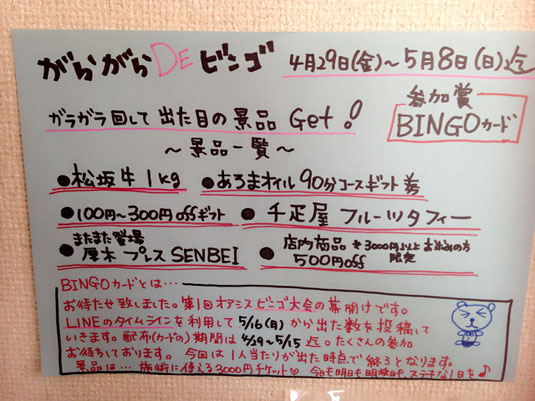 がらがらDEビンゴ 4月29日(金)〜5月8日(日)迄
ガラガラ回して出た目の景品Get!
参加賞
BINGOカード
〜景品一覧〜
●松坂牛1kg ●あろまオイル90分コースギフト券
●100円〜300円offギフト ●千疋屋フルーツタフィー
またまた登場
●厚木プレスSENBEI ●店内商品 ※3000円以上お求めの方限定
500円off
BINGOカードとは…
お待たせ致しました。第1回オアシスビンゴ大会の幕開けです。
LINEのタイムラインを利用して5/16(月)から出た数を投稿して
いきます。配布(カードの)期間は4/29〜5/15迄。たくさんの参加
お待ちしております。今回は1人当たりが出た時点で終了となります。
景品は…施術に使える3000円チケット♡ 今日も明日も明後日もステキな1日を♪